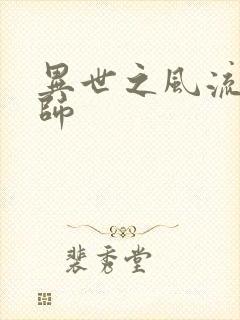 異世之風流
師
裴秀堂